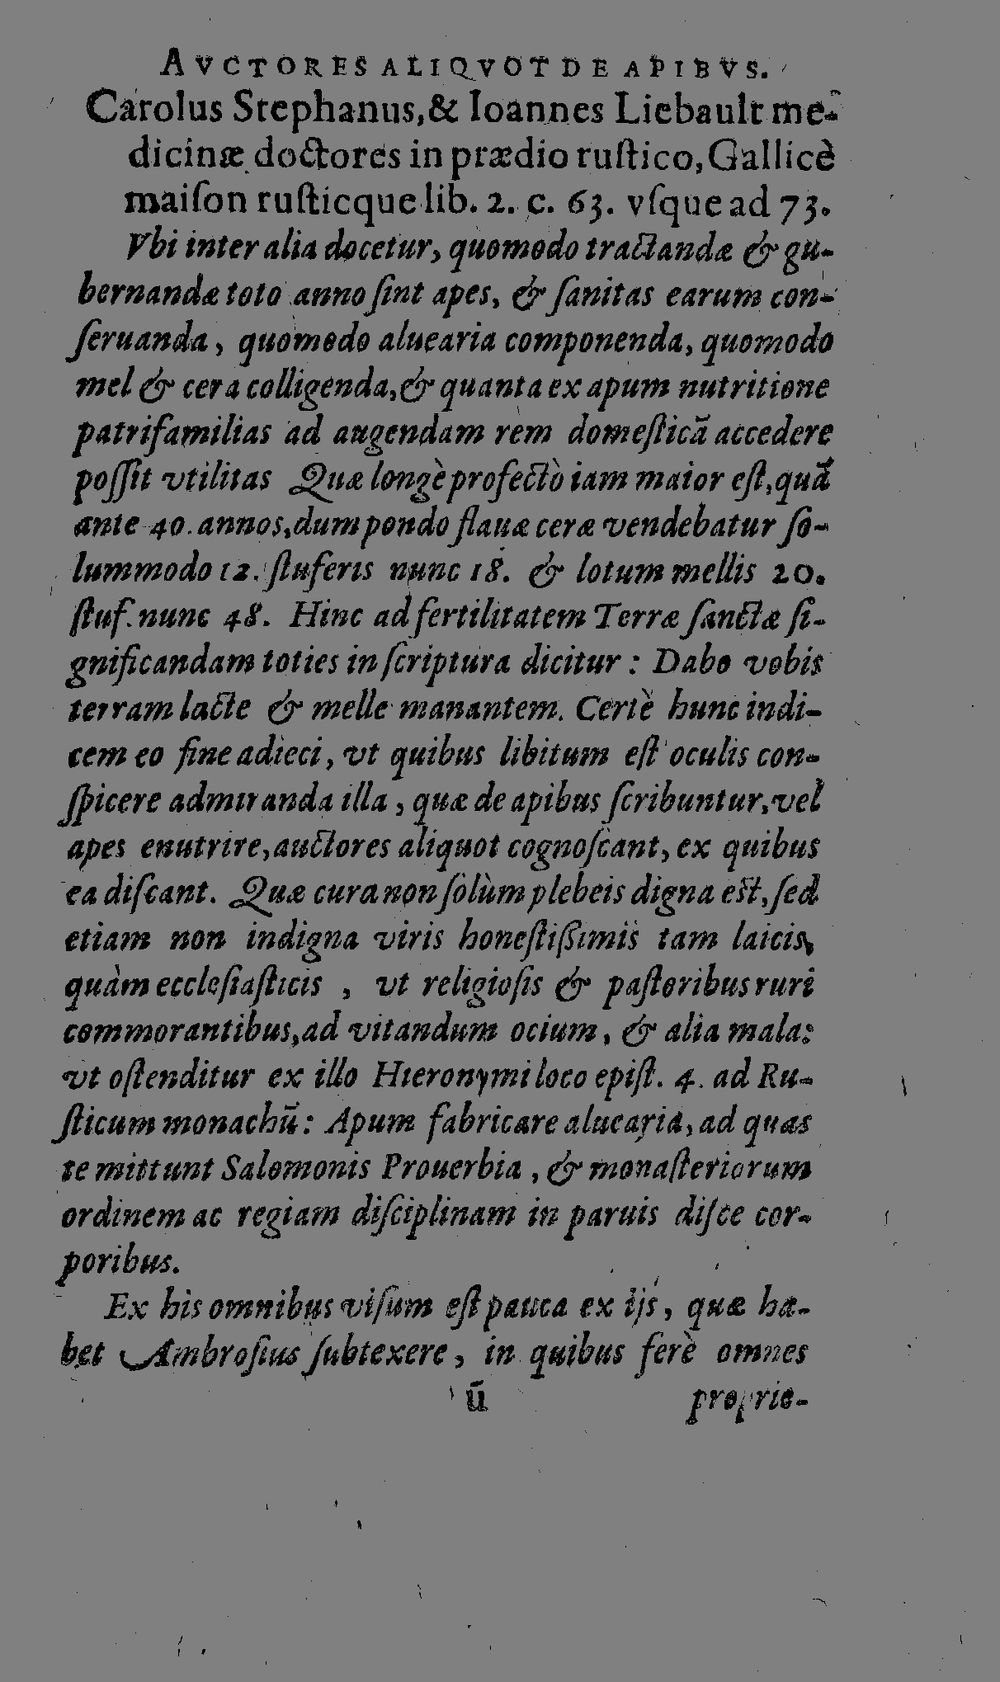 AVCTORES ALIQVOT DE APIBVS.
Carolus Stephanus, & Ioannes Liebault me-
dicinæ doctores in prædio ruſtico, Gallicè
maiſon ruſticque lib. 2. c. 63. vſque ad 73.
Vbi inter alia docetur, quomodo tractandæ & gu-
bernandæ toto anno ſint apes, & ſanitas earum con-
ſeruanda, quomodo aluearia componenda, quomodo
mel & cera colligenda, & quanta ex apum nutritione
patrifamilias ad augendam rem domeſticã accedere
poſſit vtilitas Quæ longè profectò iam maior eſt, quã
ante 40. annos, dum pondo flauæ ceræ vendebatur ſo-
lummodo 12. ſtuferis nunc 18. & lotum mellis 20.
ſtuf. nunc 48. Hinc ad fertilitatem Terræ ſanctæ ſi-
gnificandam toties in ſcriptura dicitur : Dabo vobis
terram lacte & melle manantem. Certè hunc indi-
cem eo fine adieci, vt quibus libitum eſt oculis con-
ſpicere admiranda illa, quæ de apibus ſcribuntur, vel
apes enutrire, auctores aliquot cognoſcant, ex quibus
ea diſcant. Quæ cura non ſolùm plebeis digna eſt, ſed
etiam non indigna viris honeſtißimis tam laicis,
quàm eccleſiaſticis , vt religioſis & paſtoribus ruri
commorantibus, ad vitandum ocium, & alia mala:
vt oſtenditur ex illo Hieronymi loco epiſt. 4. ad Ru-
ſticum monachũ: Apum fabricare aluearia, ad quas
te mittunt Salomonis Prouerbia, & monaſteriorum
ordinem ac regiam diſciplinam in paruis diſce cor-
poribus.
Ex his omnibus viſum eſt pauca ex ijs, quæ ha-
bet Ambroſius ſubtexere, in quibus ferè omnes
ũ proprie-